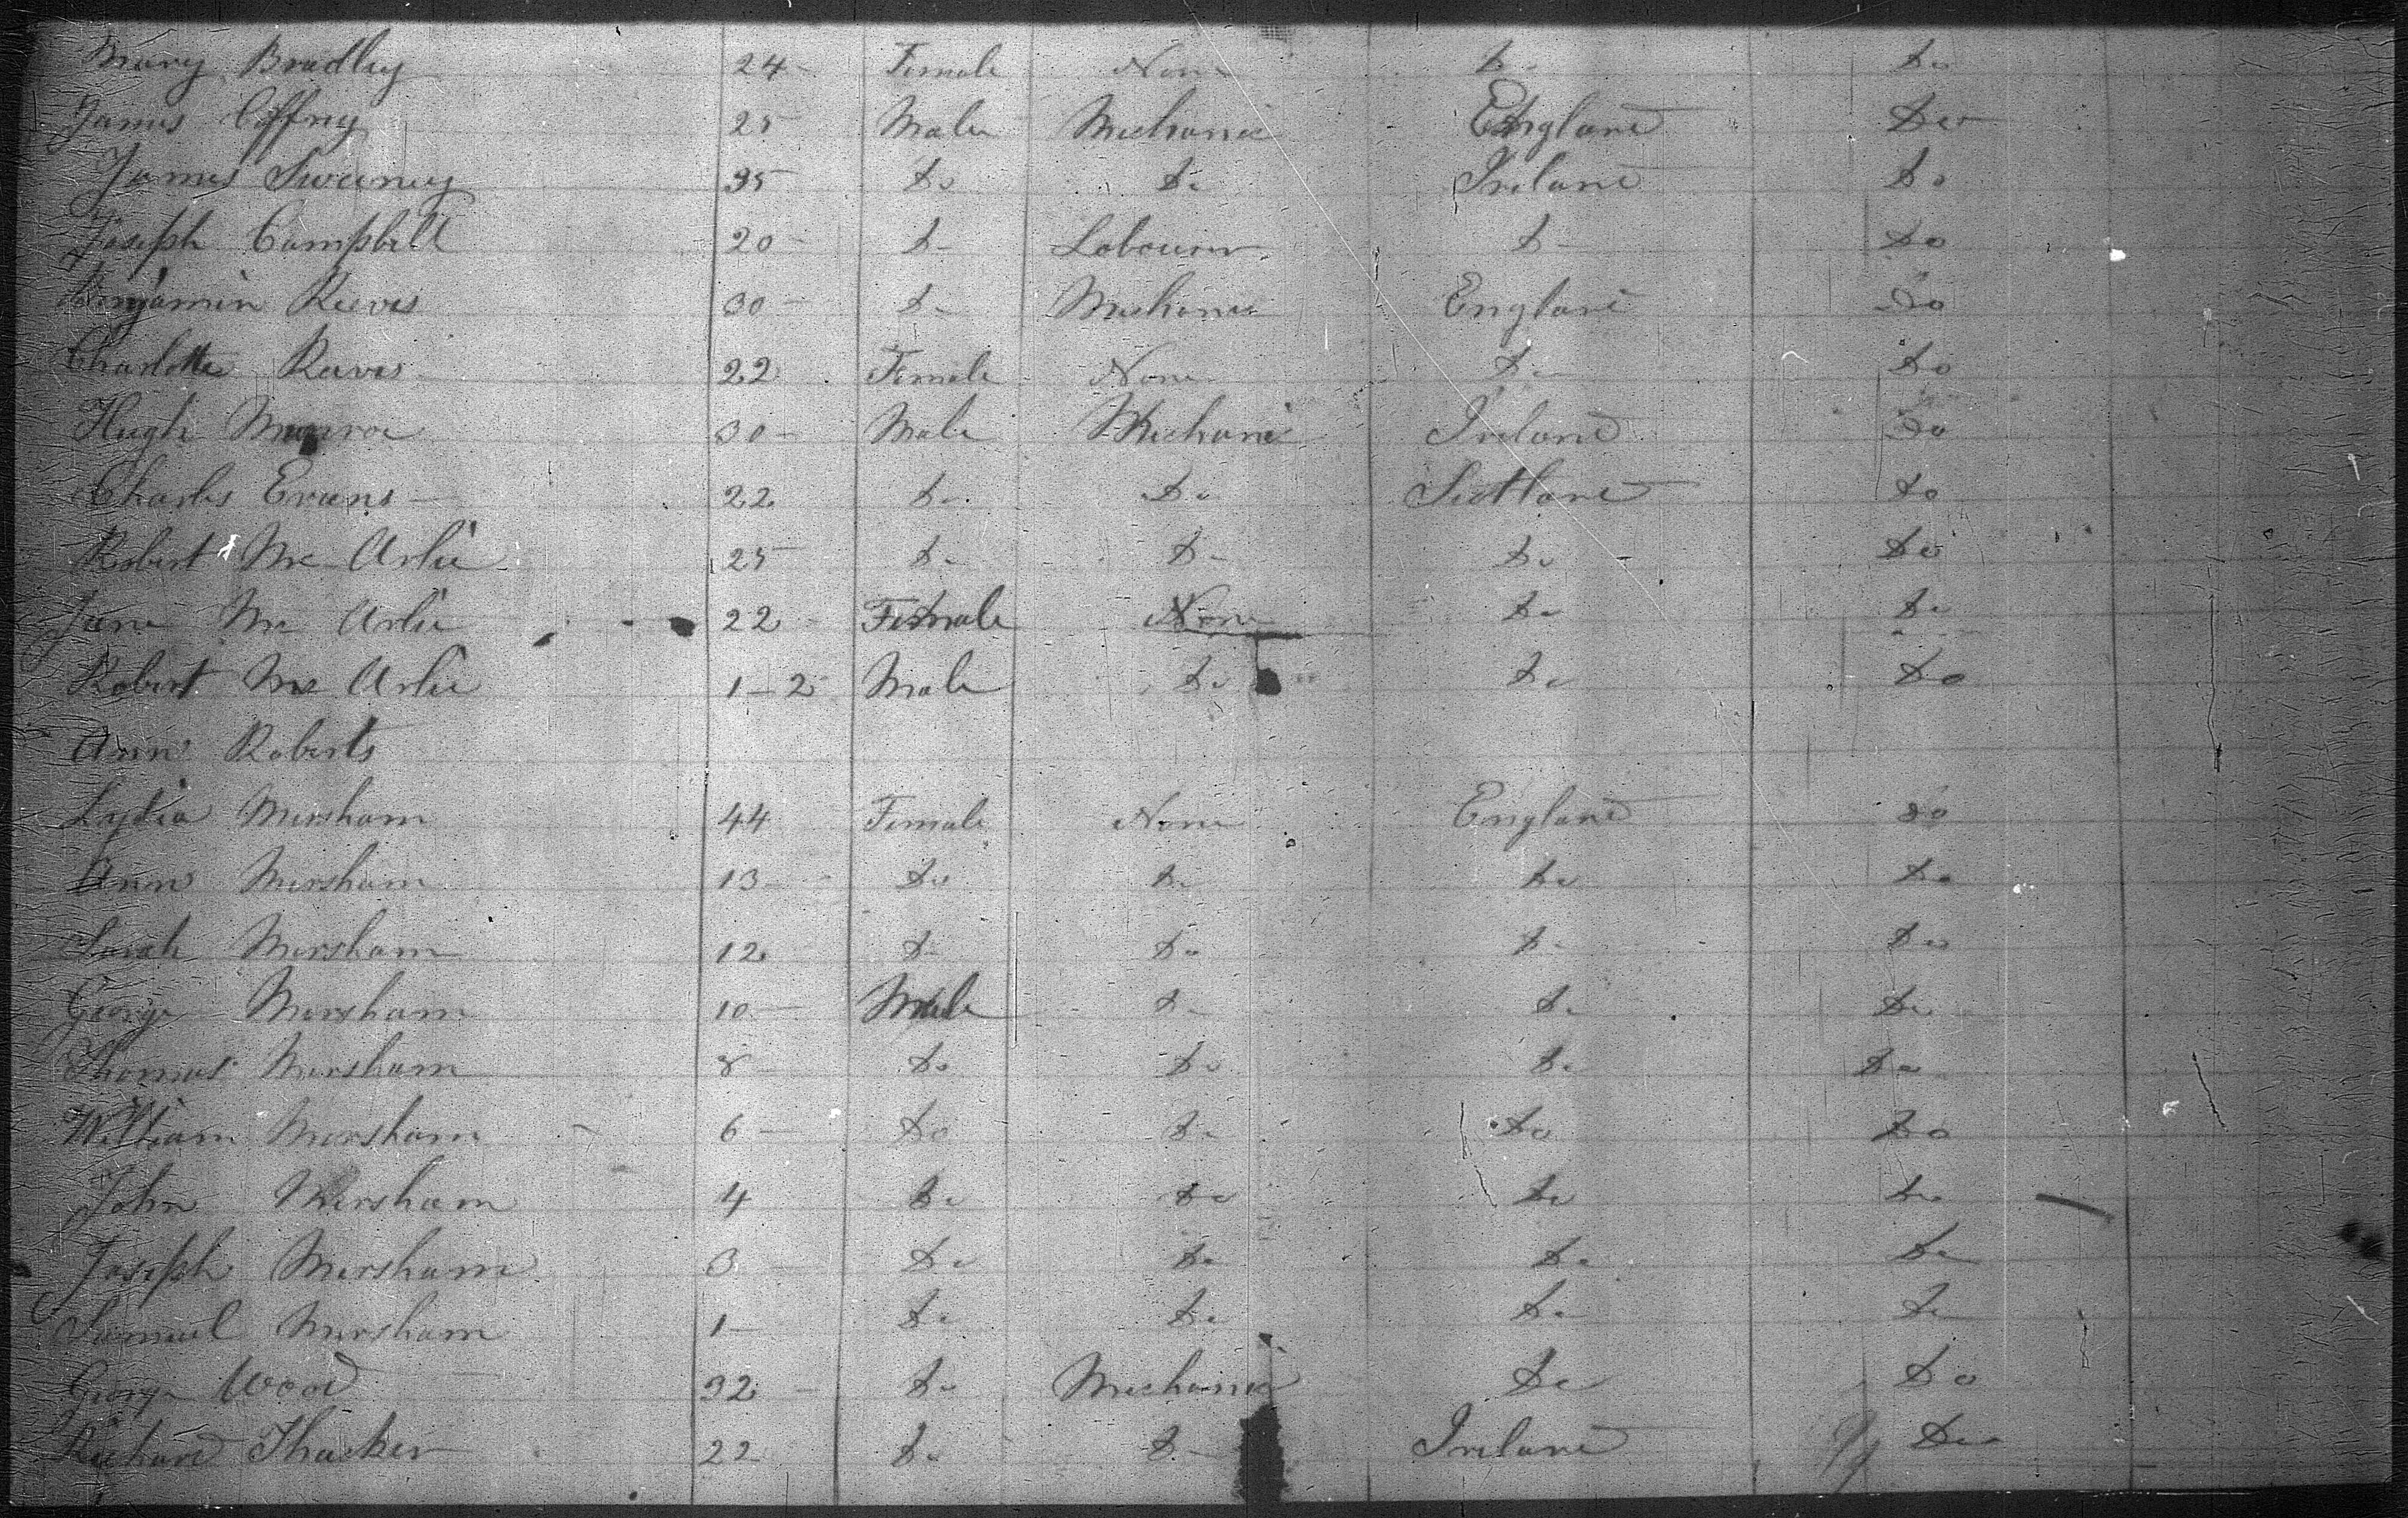 Mary Bradley 24 Female None Do Do
James Coffrey 25 Male Mechanic England Do
James Sweeney 35 Do Do Ireland Do
Joseph Campbell 20 Do Labourer Do Do
Benjamin Reeves 30 Do Mechanic England Do
Charlotte Reeves 22 Female None Do Do
Hugh Munroe 30 Male Mechanic Ireland Do
Charles Evans 22 Do Do Scotland Do
Robert Mc Arlie 25 Do Do Do Do
Jane Mc Arlie 22 Female None Do Do
Robert Mc Arlie 1-2 Male Do Do Do
Ann Roberts
Lydia Mersham 44 Female None England Do
Ann Mersham 13 Do Do Do Do
Sarah Mersham 12 Do Do Do Do
George Mersham 10 Male Do Do Do
Thomas Mersham 8 Do Do Do Do
William Mersham 6 Do Do Do Do
John Mersham 4 Do Do Do Do
Joseph Mersham 3 Do Do Do Do
Samuel Mersham 1 Do Do Do Do
George Wood 32 Do Mechanic Do Do
Richard Thacker 22 Do Do Ireland Do